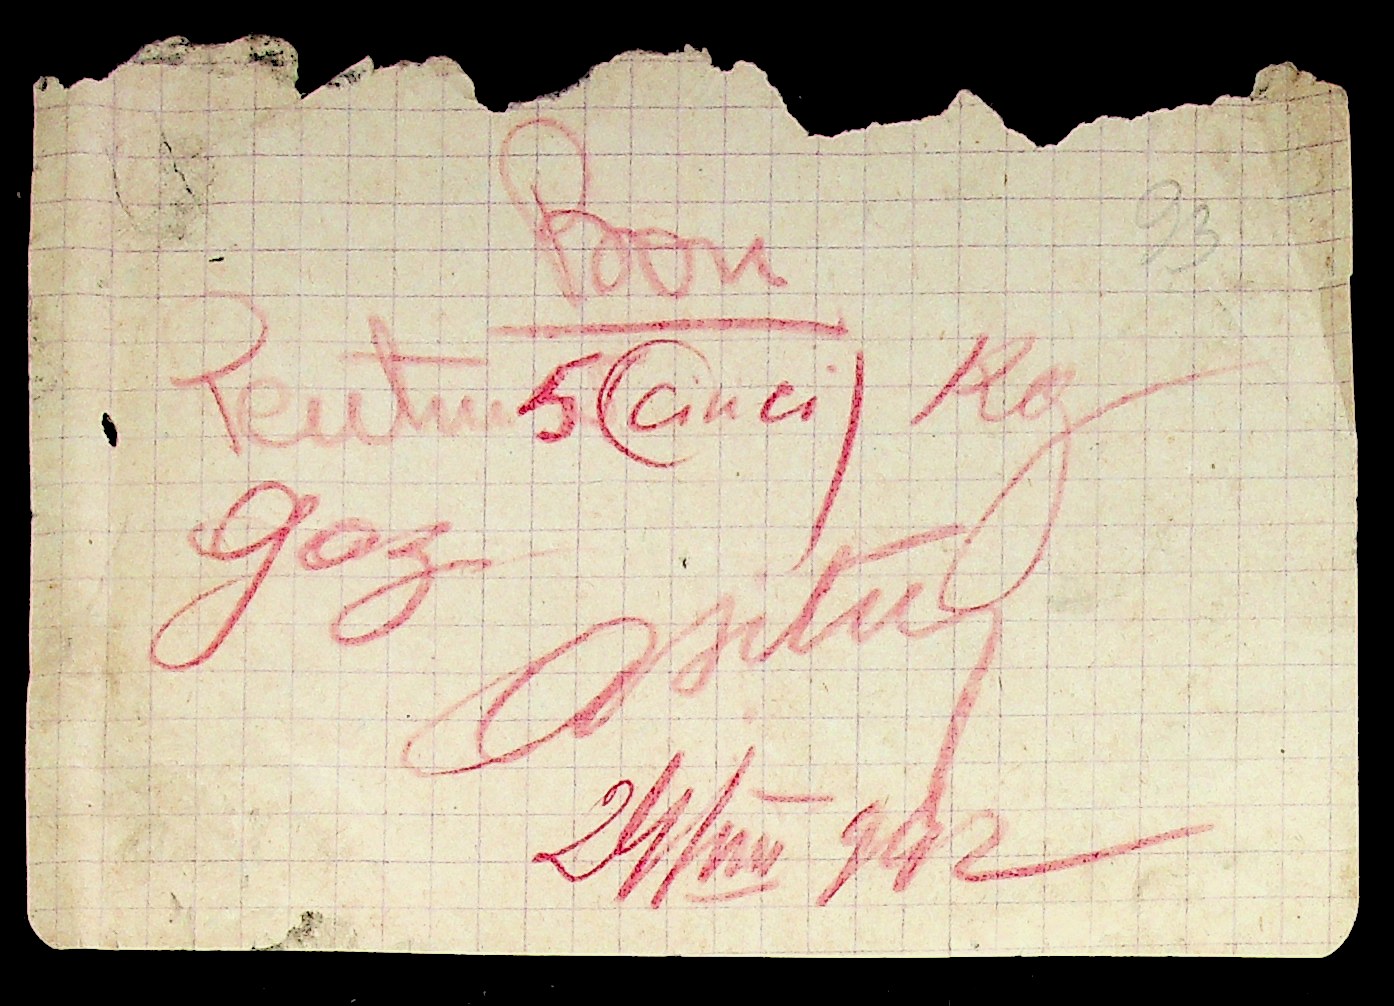 93
Bon
Pentru 5 (cinci) Kg
gaz
24/VIII 942